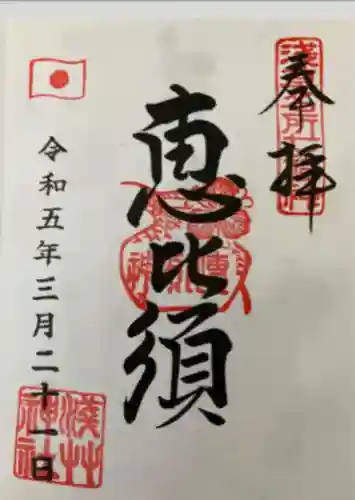 奉拝
恵比須
令和五年三月二十一日
浅草
神社